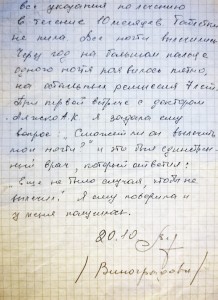 все указания по лечению
в течение 10 месяцев. Таблетки
не пила. Все ногти вычистила.
Через год на большом пальце
одного ногтя появилось пятно,
на остальных ремиссия 7 лет.
При первой встрече с доктором
А.К. я задала ему
вопрос: "Сможете ли он вылечить
мои ногти?" и это был единствен.
врач, который ответил:
Еще не было случая, чтобы не
вылечил! Я ему поверила и
у меня получилось.
20.10
/Виноградова/